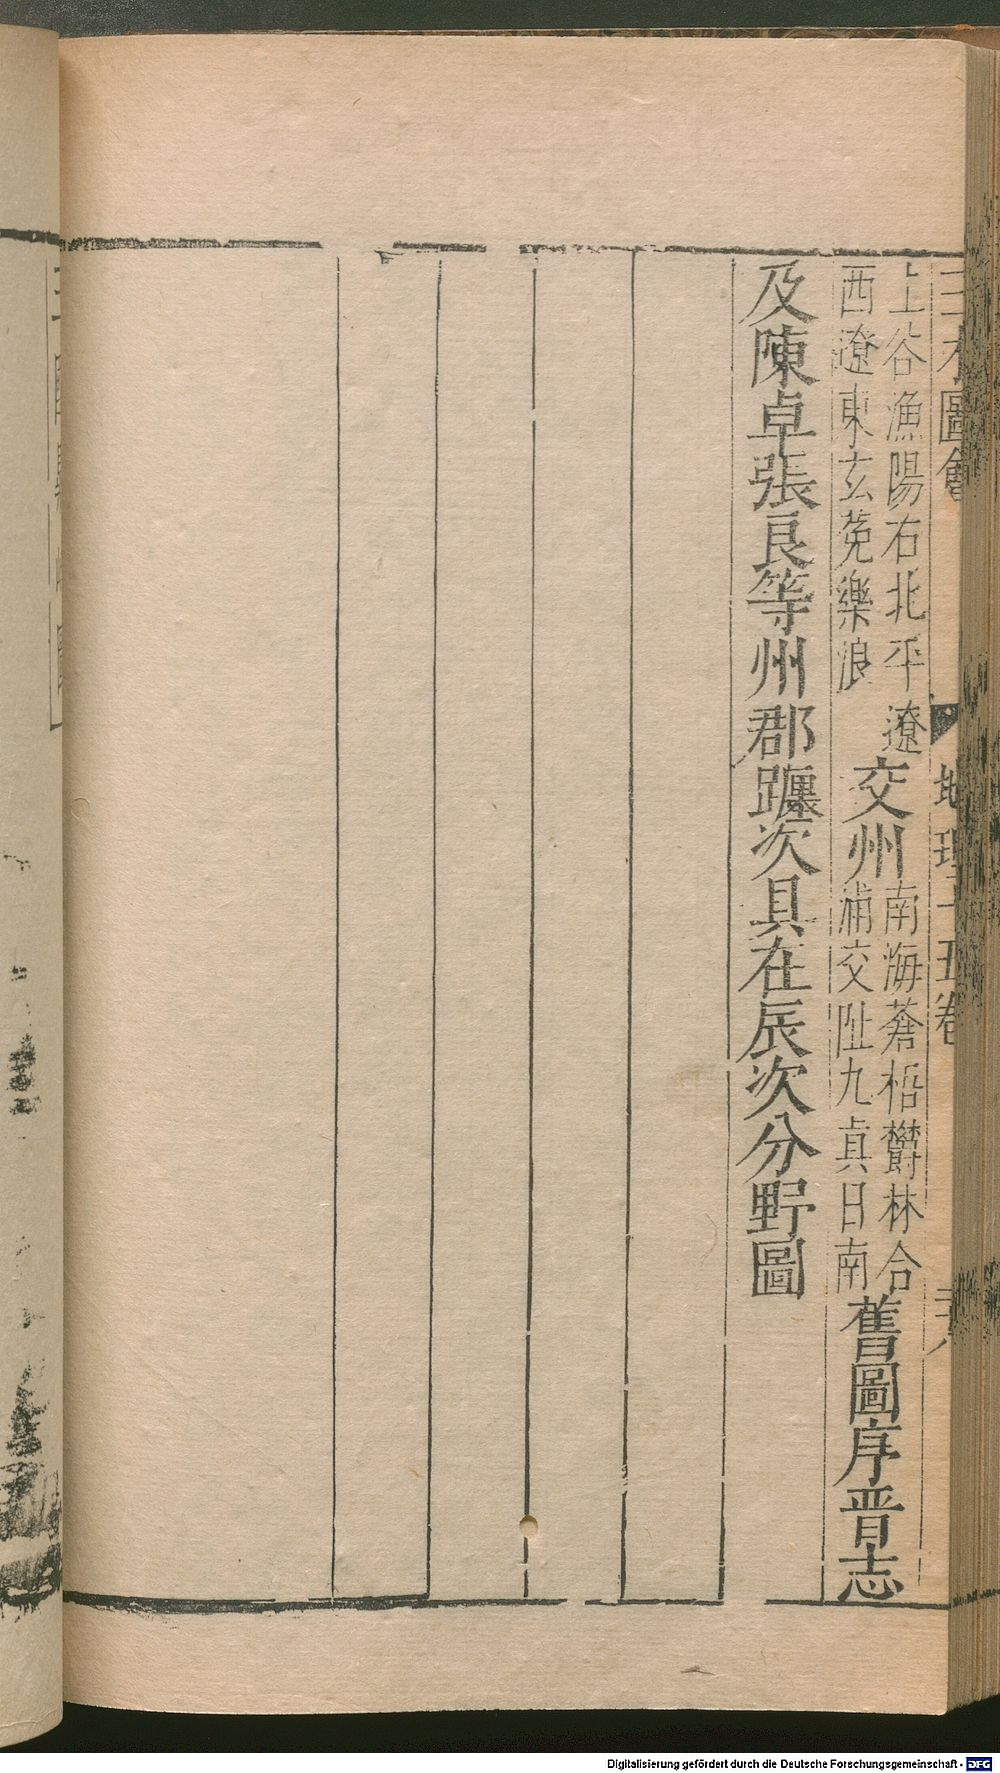 三才圖會 地理十五卷
上谷漁陽右北平遼
西遼東玄菟樂浪
交州
南海蒼梧鬱林合
浦交阯九真日南
舊圖序晋志
及陳卓張良等州郡躔次具在辰次分野圖
Digitalisierung gefördert durch die Deutsche Forschungsgemeinschaft - DFG